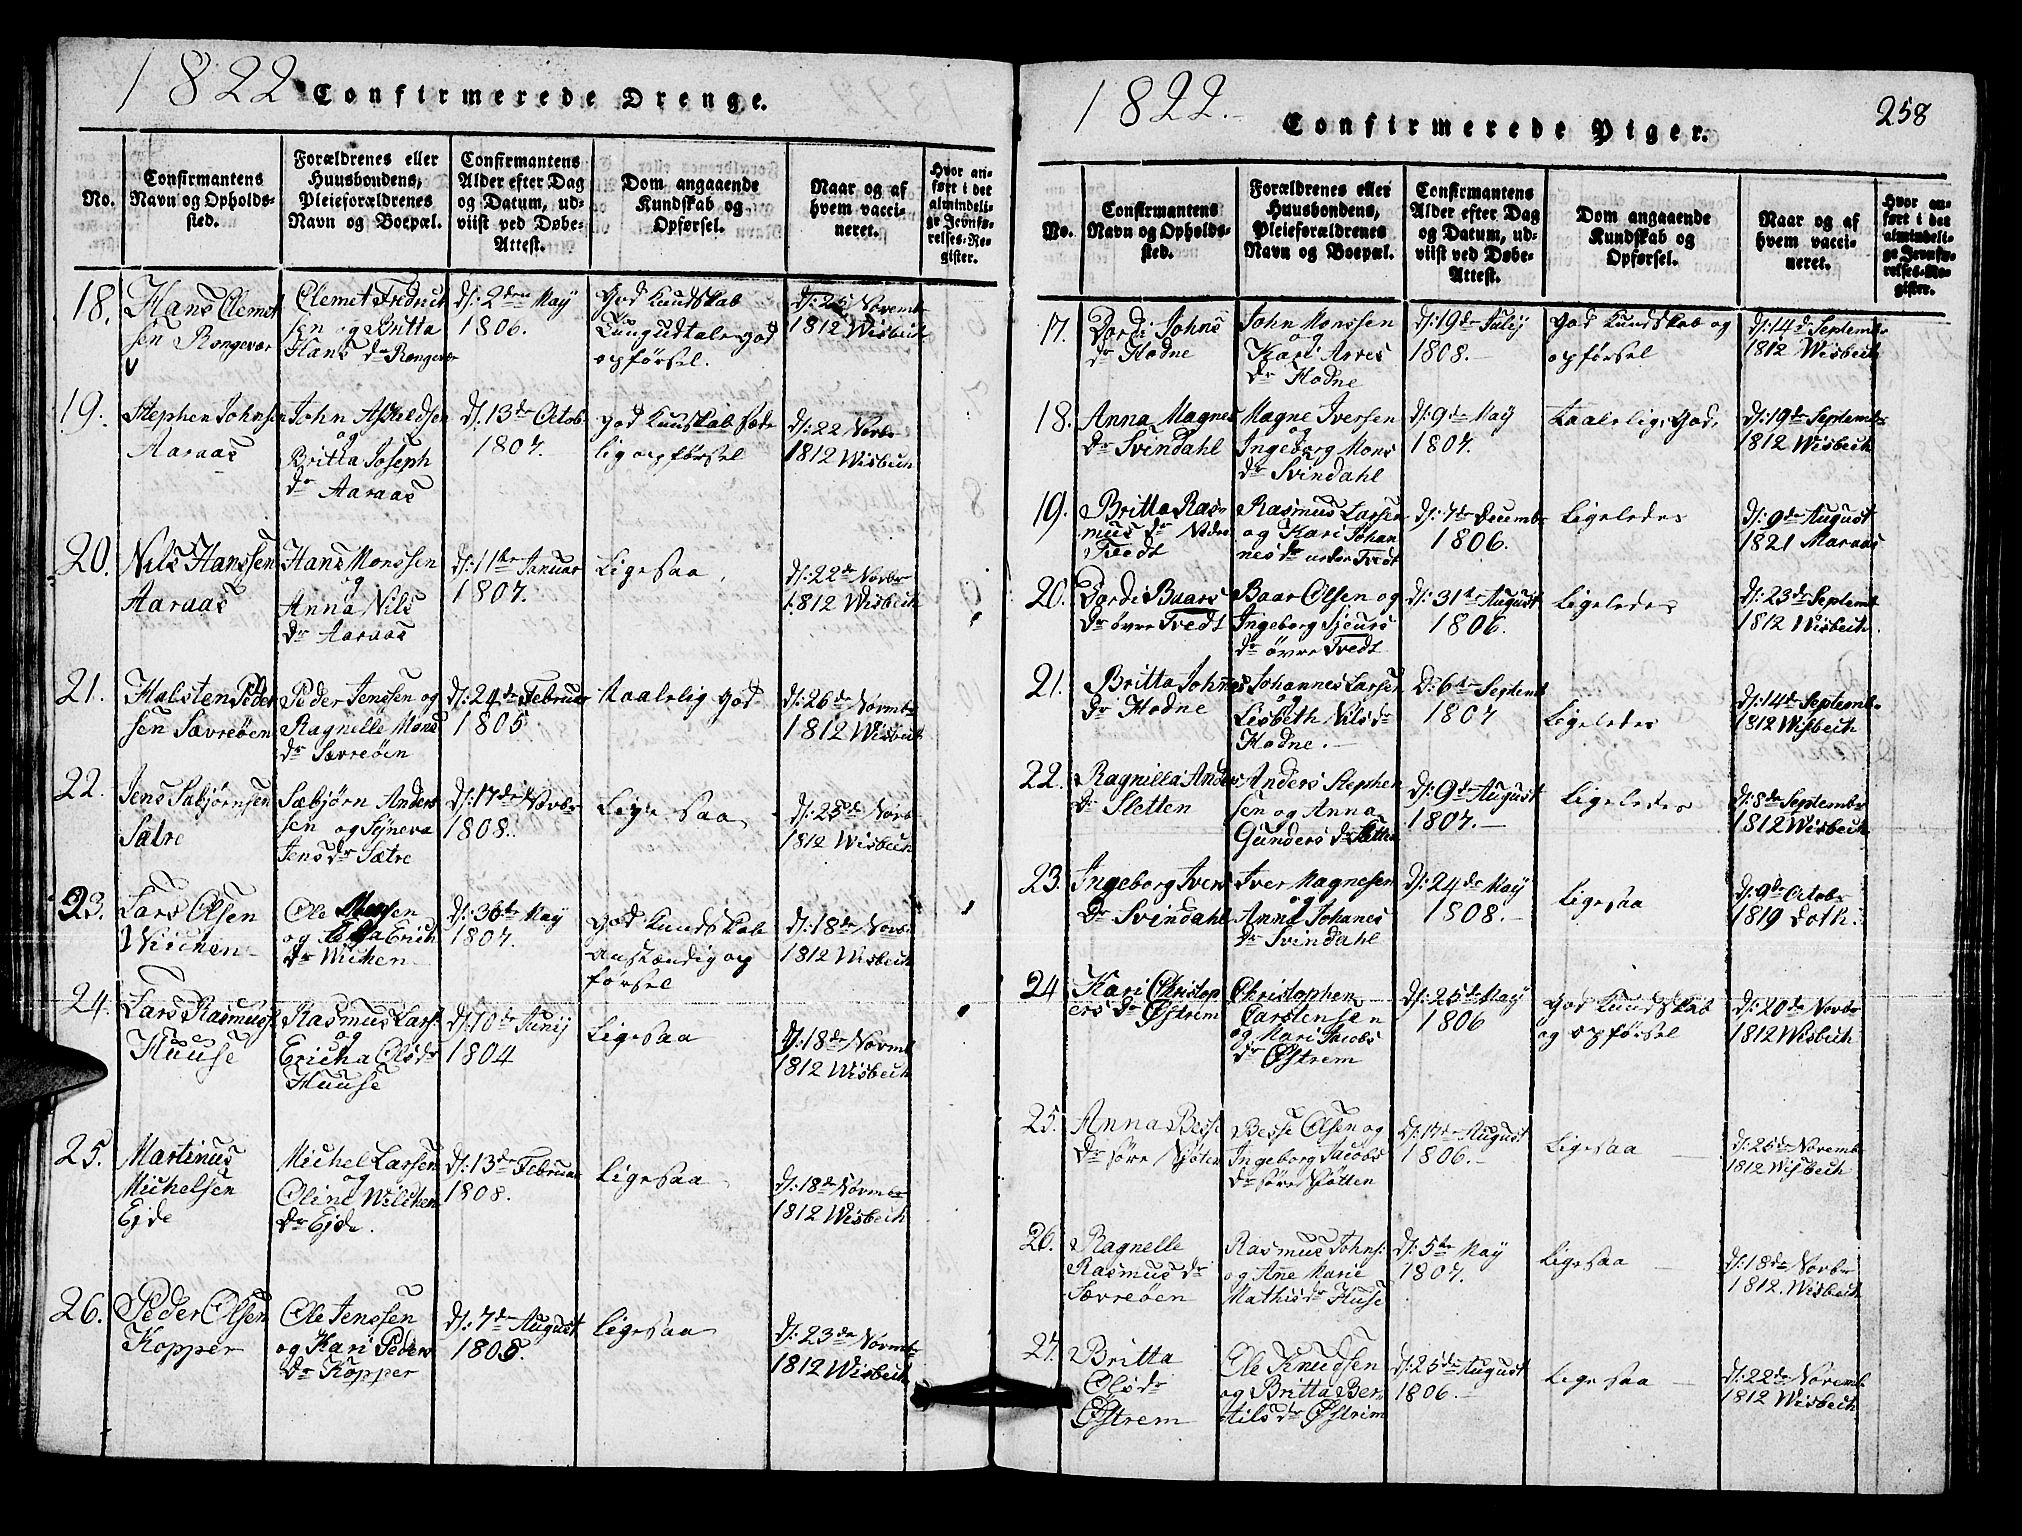 1822 Confirmerede Drenge.
No.
Confirmantens
Navn og Opholds-
sted.
Forældrenes eller
Huusbondens,
Pleieforældrenes
Navn og Boepæl.
Confirmantens
Alder efter Dag
og Datum, ud-
viist ved Døbe-
Attest.
Dom angaaende
Kundskab og
Opførsel.
Naar og af
hvem vacci-
neret.
Hvor an-
ført i det
almindeli-
ge Jevnfø-
relses-Re-
gister.
18.
Hans Clemet
sen Rongevær
Clemet Fridrich
sen og Britta
Hans dr Rongevær
d/: 2den May
1806.
God Kundskab
god
opførsel.
d/: 26 Novemb
1812 Wisbech
19.
Stephen Johnsen
Aaraas
John
og
Britta Joseph
dr Aaraas
d/: 13de Octob
1807.
god Kundskab
lig opførsel
d/: 22 Novbr
1812 Wisbech
20.
Nils Hanssen
Aaraas
Hans Monssen
og
Anna Nils
dr Aaraas
d/: 11te Januar
1807.
Ligesaa
d/: 22de Novbr
1812 Wisbech
21.
Halsten Peder
sen Sævreøen
Peder Jenssen og
Ragnille Mons
dr Sævreøen
d/: 24de Februar
1805
taalelig god
d/: 26de Novmbr
1812 Wisbech
22.
Jens Sabjørnsen
Satre
Sæbjørn Anders
sen og Syneva
Jens dr Sætre
d/: 17de Novbr
1808.
Ligesaa
d/: 25de Novb
1812 Wisbech
23.
Lars Olsen
Wichen
Ole
og Erich
dr Wichen
d/: 30te May
1807.
god Kundskab
anstændig op
førsel
d/: 18de Novbr
1812 Wisbech
24.
Lars Rasmuss.
Huuse
Rasmus Lars.
og
Ericha Olsdr
Huuse
d/: 10de Junij
1804
Ligesaa
d/: 18de Novmb
1812 Wisbech
25.
Martinus
Michelsen
Ejde
Michel Larsen
og
Oline Wilchen
dr Ejde.
d/: 13de Februar
1808.
Ligesaa
d/: 18de Novmbr
1812 Wisbech
26.
Peder Olsen
Kopper
Ole Jenssen
og Kari Peders
dr Kopper
d/: 7de August
1805.
Ligesaa
d/: 23de Novmbr
1812 Wisbech
1822.
Confirmerede Piger.
258
No.
Confirmantens
Navn og Opholds-
sted.
Forældrenes eller
Huusbondens,
Pleieforældrenes
Navn og Boepæl.
Confirmantens
Alder efter Dag
og Datum, ud-
viist ved Døbe-
Attest.
Dom angaaende
Kundskab og
Opførsel.
Naar og af
hvem vacci-
neret.
Hvor an-
ført i det
almindeli-
ge Jevnfø-
relses-Re-
gister.
17.
Dordi Johns
dr Hodne
John Monssen
og
Kari Arves
dr Hodne
d/: 19de Julij
1808.
God Kundskab og
opførsel
d/: 14de Septembr
1812 Wisbech
18.
Anna Magnes
dr Svindahl
Magne Iversen
og
Ingeborg Mons
dr Svindahl
d/: 9de May
1807.
Taalelig God
d/: 19de Septembr
1812 Wisbech
19.
Britta Ras-
mus dr Nedre
Tvedt
Rasmus Larsen
og Kari Johan
nes dr Tvedt
d/: 7de Decemb
1806.
Ligeledes
d/: 9de August
1821 Maraas
20.
Dordi Baars
dr øvre Tvedt
Baar Olsen og
Ingeborg Sjeurs
dr øvre Tvedt
d/: 31te August
1806.
Ligeledes
d/: 23de Septemb
1812 Wisbech
21.
Britta Johnes
dr Hodne
Johannes Larsen
og
Lisbeth Nilsdr
Hodne.
D: 6te Septemb
1807
Ligeledes
d/: 14de Septemb.
1812 Wisbech
22.
Ragnilla Anders
dr Sletten
Anders Stephen
sen og Anna
Gunders dr Sletten
d/: 9de August
1807.
Ligeledes
d/: 8de Septembr
1812 Wisbech
23.
Ingeborg Ivers
dr Svindahl
Iver Magnesen
og
Anna Johanes
dr Svindahl
d/: 24de May
1808.
Ligesaa
d/: 9de Octobr
1819 Loth.
24
Kari Christop
ers dr Østrem
Christophen
Carstensen
og Mari Jacobs
dr Østrem
d/: 25de May
1806
God Kundskab
og opførsel
d/: 20de Novbr
1812 Wisbech
25.
Anna Besse
dr søre Nøtten
Besse Olsen og
Ingeborg Jacobs
dr søre Nøtten
d/: 17de August
1806.
Ligesaa
d/: 25de Novemb
1812 Wisbech
26.
Ragnelle
Rasmus dr
Sævreøen
Rasmus Johns:
og Ane Marie
Mathisdr Huse
d/: 5te May
1807.
Ligesaa
d/: 18de Novbr
1812. Wisbech
27.
Britta
Olsdr
Østrem
Ole Knudsen
og Britta Ber
tils dr Østrem
d/: 25de August
1806.
Ligesaa
d/: 22de Novemb
1812 Wisbech